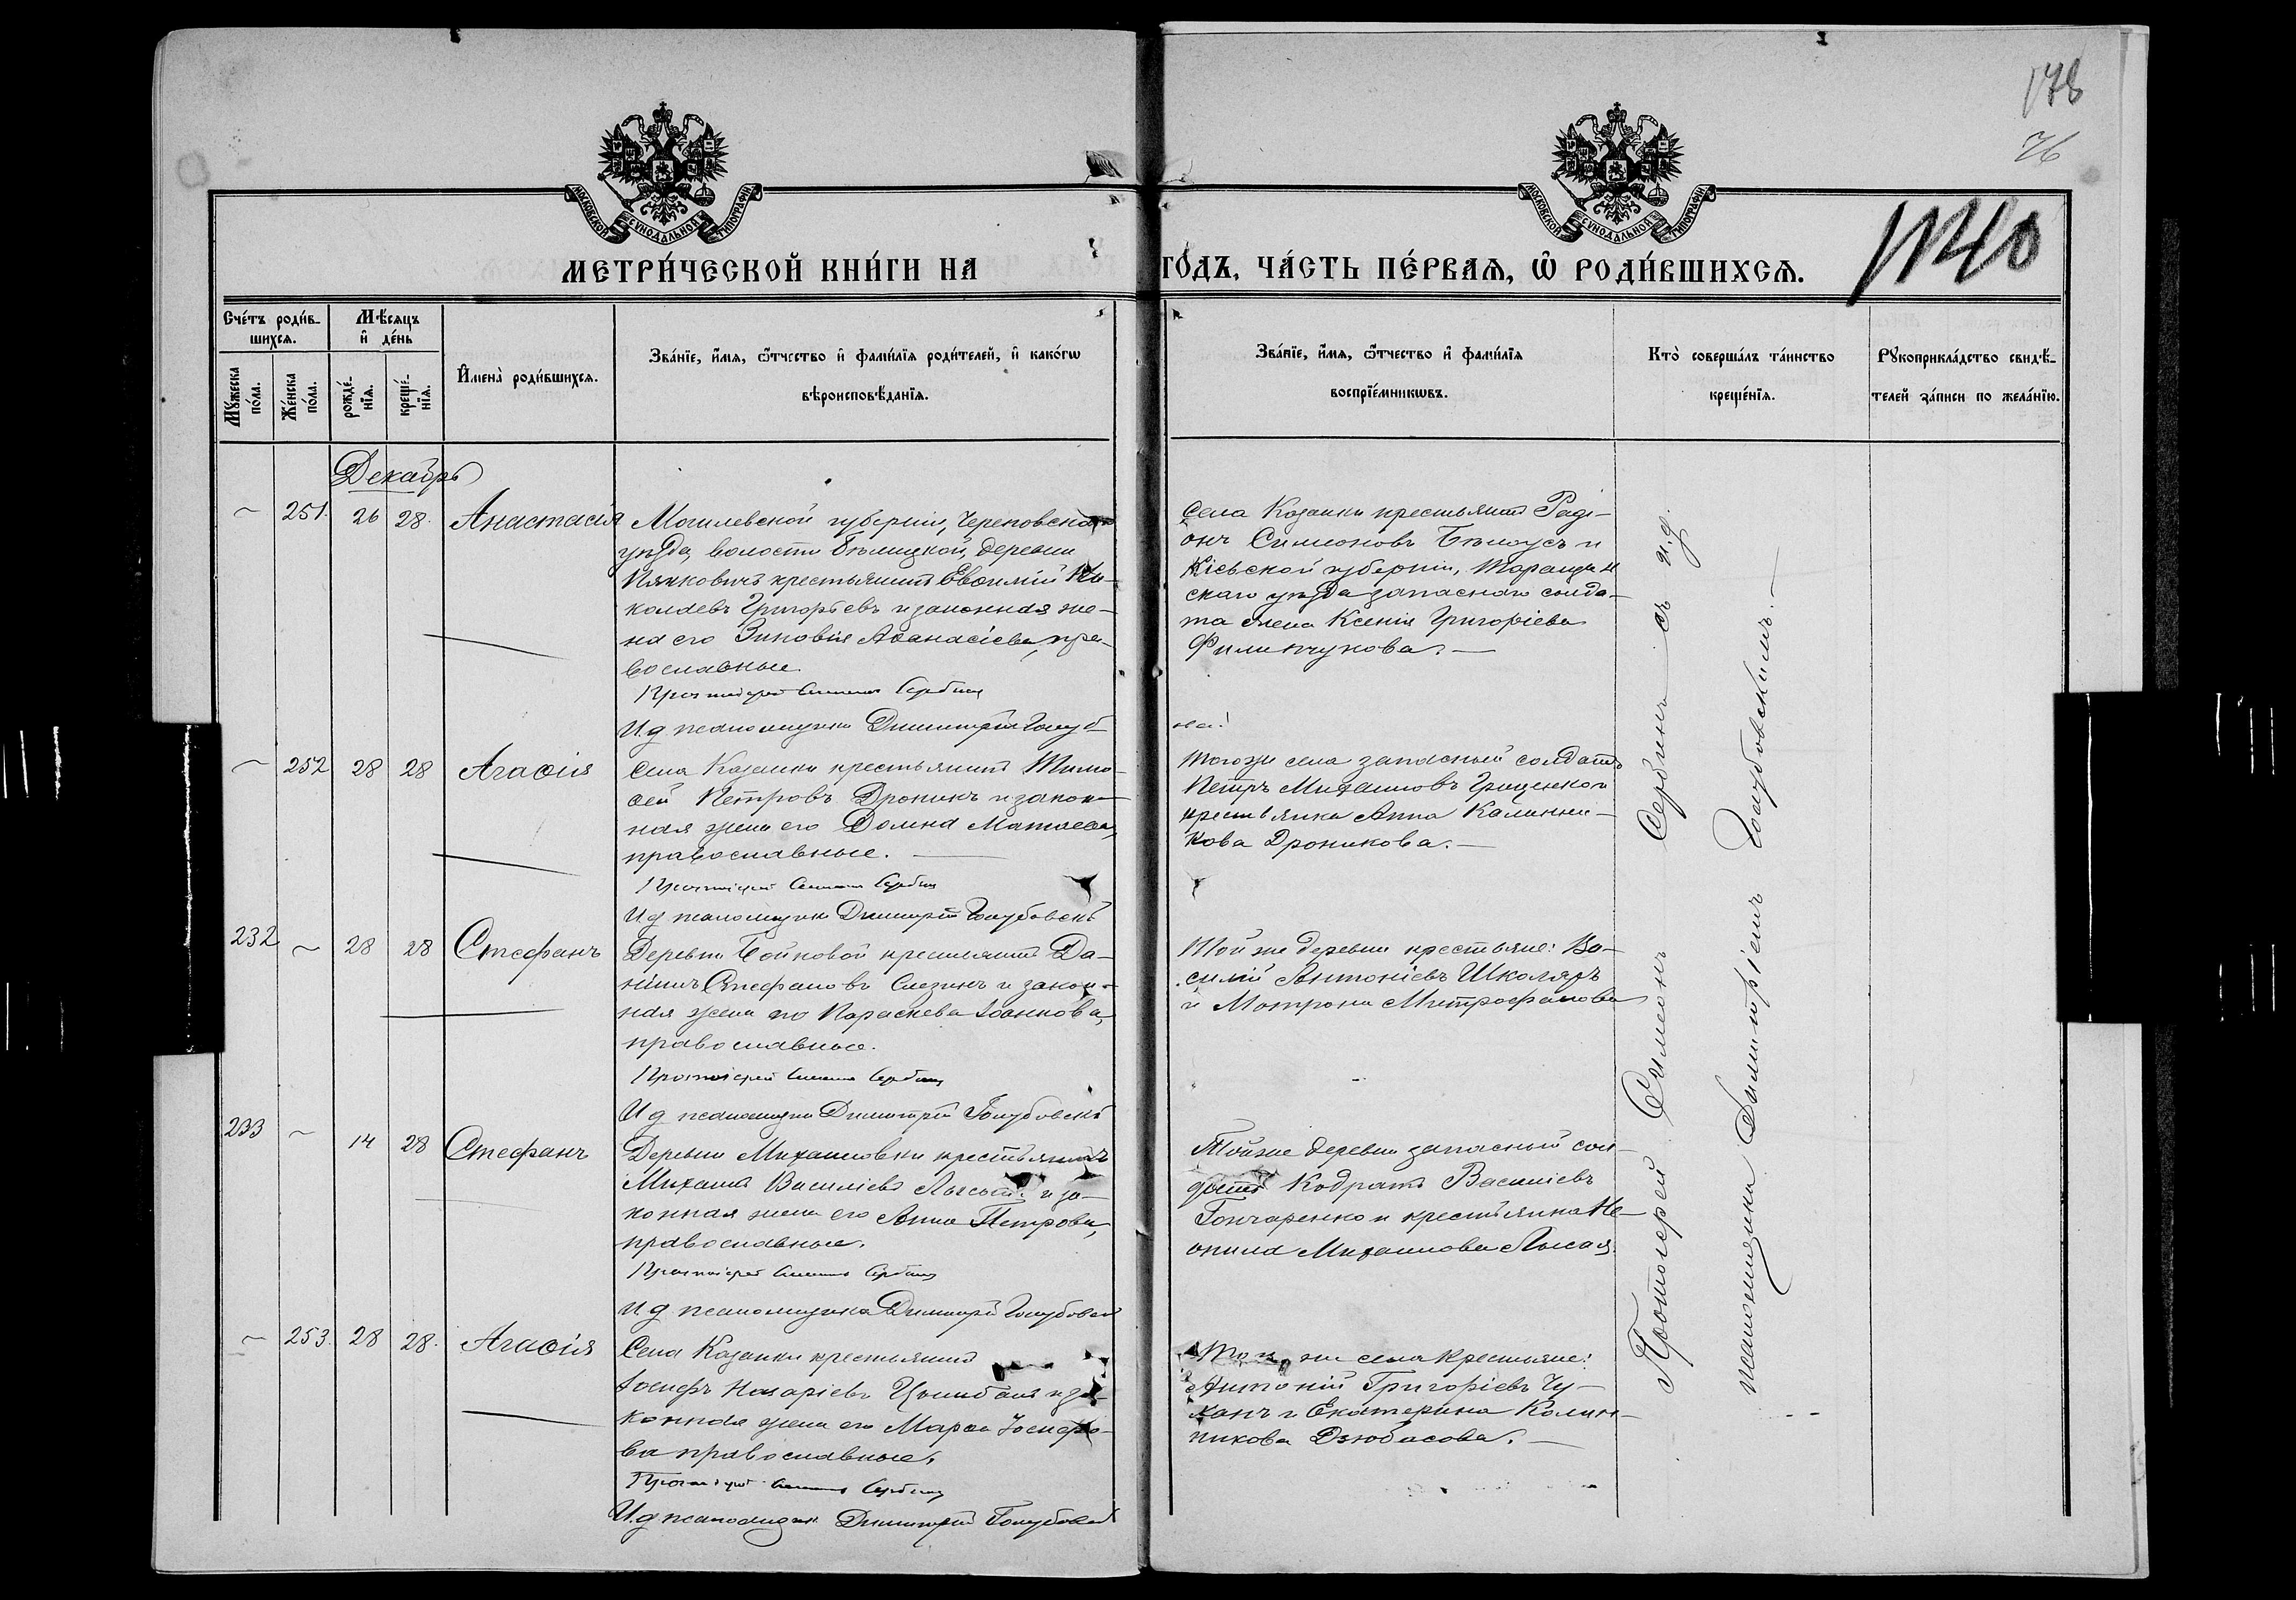 178
76
МОСКОВСКОЙ СѴНОДАЛЬНОЙ ТИПОГРАФИИ
МОСКОВСКОЙ СѴНОДАЛЬНОЙ ТИПОГРАФИИ
МЕТРИ́ЧЕСКОЙ КНИ́ГИ НА
ГО́ДЪ, ЧА́СТЬ ПЕ́РВАѦ, Ѽ РОДИ́ВШИХСѦ.
1140
Сче́тъ роди́в-
шихсѧ.
Мꙋ́жеска по́ла.
Же́нска по́ла.
Мѣ́сѧцъ
и҆ де́нь
рожде́-
нїѧ.
креще́-
нїѧ.
И҆мена̀ роди́вшихсѧ.
Зва́нїе, и҆́мѧ, ѻ҆́тчество и҆ фами́лїѧ роди́телей, и҆ како́гѡ
вѣроисповѣ́данїѧ.
Зва́нїе, и҆́мѧ, ѻ҆́тчество и҆ фами́лїѧ
воспрїе́мникѡвъ.
Кто̀ соверша́лъ та́инство
креще́нїѧ.
Рꙋкоприкла́дство свидѣ́-
телей за́писи по жела́нїю.
Декабрь
251. 26 28. Анастасія
Могилевской губерніи, Чериковскаго
уѣзда, волости Бѣлицкой, деревни
крестьянинъ Евѳимій Ни-
колаевъ Григорьевъ и законная же-
на его Зиновія Аѳанасіева, пра-
вославные
Протоіерей Симеонъ Сербинъ
И.д псаломщика Димитрій Голуб
Села Казанки крестьянинъ Роді-
онъ Симеоновъ Бѣлоусъ и
Кіевской губерніи, Таращан
скаго уѣзда запаснаго солда-
та жена Ксенія Григоріева
Филипчукова. —
252 28 28 Агаѳія
Села Казанки крестьянинъ Тимо-
ѳей Петровъ Дроникъ и закон-
ная жена его Домна Матѳеева,
православные. —
Протоіерей Симеонъ Сербинъ
И.д псаломщика Димитрій Голубовскі
Тогожъ села запасный солдатъ
Петръ Михаиловъ Гриценко и
крестьянка Анна Калинни-
кова Дроникова. —
232 28 28 Стефанъ
Деревни Бойковой крестьянинъ Да-
ніилъ Стефановъ Слезинъ и закон-
ная жена его Параскева Іоаннова,
православные.
Протоіерей Симеонъ Сербинъ
И д псаломщика Димитрій Голубовскі
Той же деревни крестьяне: Ва-
силій Антоніевъ Школяръ
и Матрона Митрофанова
233 14 28 Стефанъ
Деревни Михайловки крестьянинъ
Михаилъ Василіевъ Лысый и за-
конная жена его Анна Петрова,
православные.
Протоіерей Симеонъ Сербинъ
И д псаломщика Димитрій Голубовскі
Тойже деревни запасный сол-
датъ Кодратъ Василіевъ
Гончаренко и крестьянка Не-
онила Михаилова Лысая.
253. 28 28. Агаѳія
Села Казанки крестьянинъ
Іосифъ Назаріевъ Цымбалъ и за-
конная жена его Марѳа Іосифо-
ва православные.
Протоіерей Симеонъ Сербинъ
И.д псаломщика Димитрій Голубовскі
Того же села Крестьяне:
Антоній Григоріевъ Чу-
ханъ и Екатерина Калин-
никова Дзюбасова. —
Протоіерей Симеонъ Сербинъ съ и.д.
псаломщика Димитріемъ Голубовскимъ. —